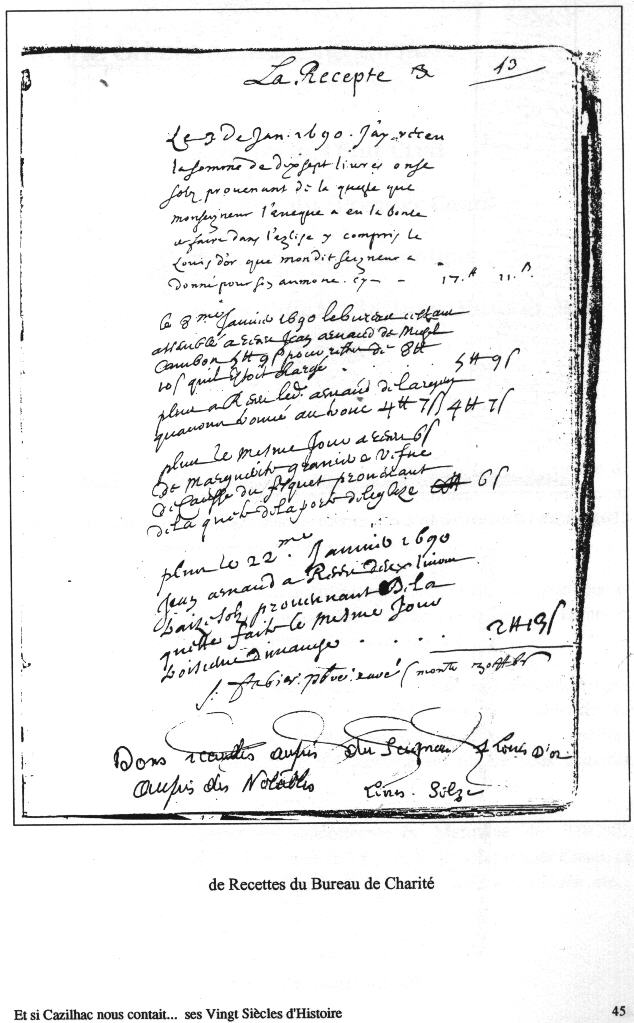 La Recepte 13
Le 3 De Jan. 1690. J'ay receu
la somme de dixsept livres onse
solz provenant de la queste que
monseigneur l'eveque a eu la bonte
de faire dans l'eglise y compris le
Louis d'or que mondit seigneur a
donné pour son aumone. cy - - 17.tt 11.s
le 8me Janvier 1690 le bureau
assemblé a Jean arnaud de
Cambon 5tt 9s pour de 8tt
10s quil étoit chargé . . 5tt 9s
plus a led. arnaud de
quavons trouvé au tronc 4tt 7s 4tt 7s
plus le mesme Jour a 6s
de Marguerite
de provenant
de la quete de la porte de leglise 6s
plus le 22me. Janvier 1690
Jean arnaud a
solz provenant de la
quette faite le mesme Jour
dimange . . . . 2tt 13s
monte
Dons recueillis auprès du Seigneur 1 Louis D'or
Auprès des Notables Livres. Solz
de Recettes du Bureau de Charité
Et si Cazilhac nous contait... ses Vingt Siècles d'Histoire 45